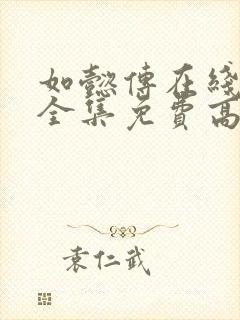 如懿傳在綫
全集免費高
袁仁武